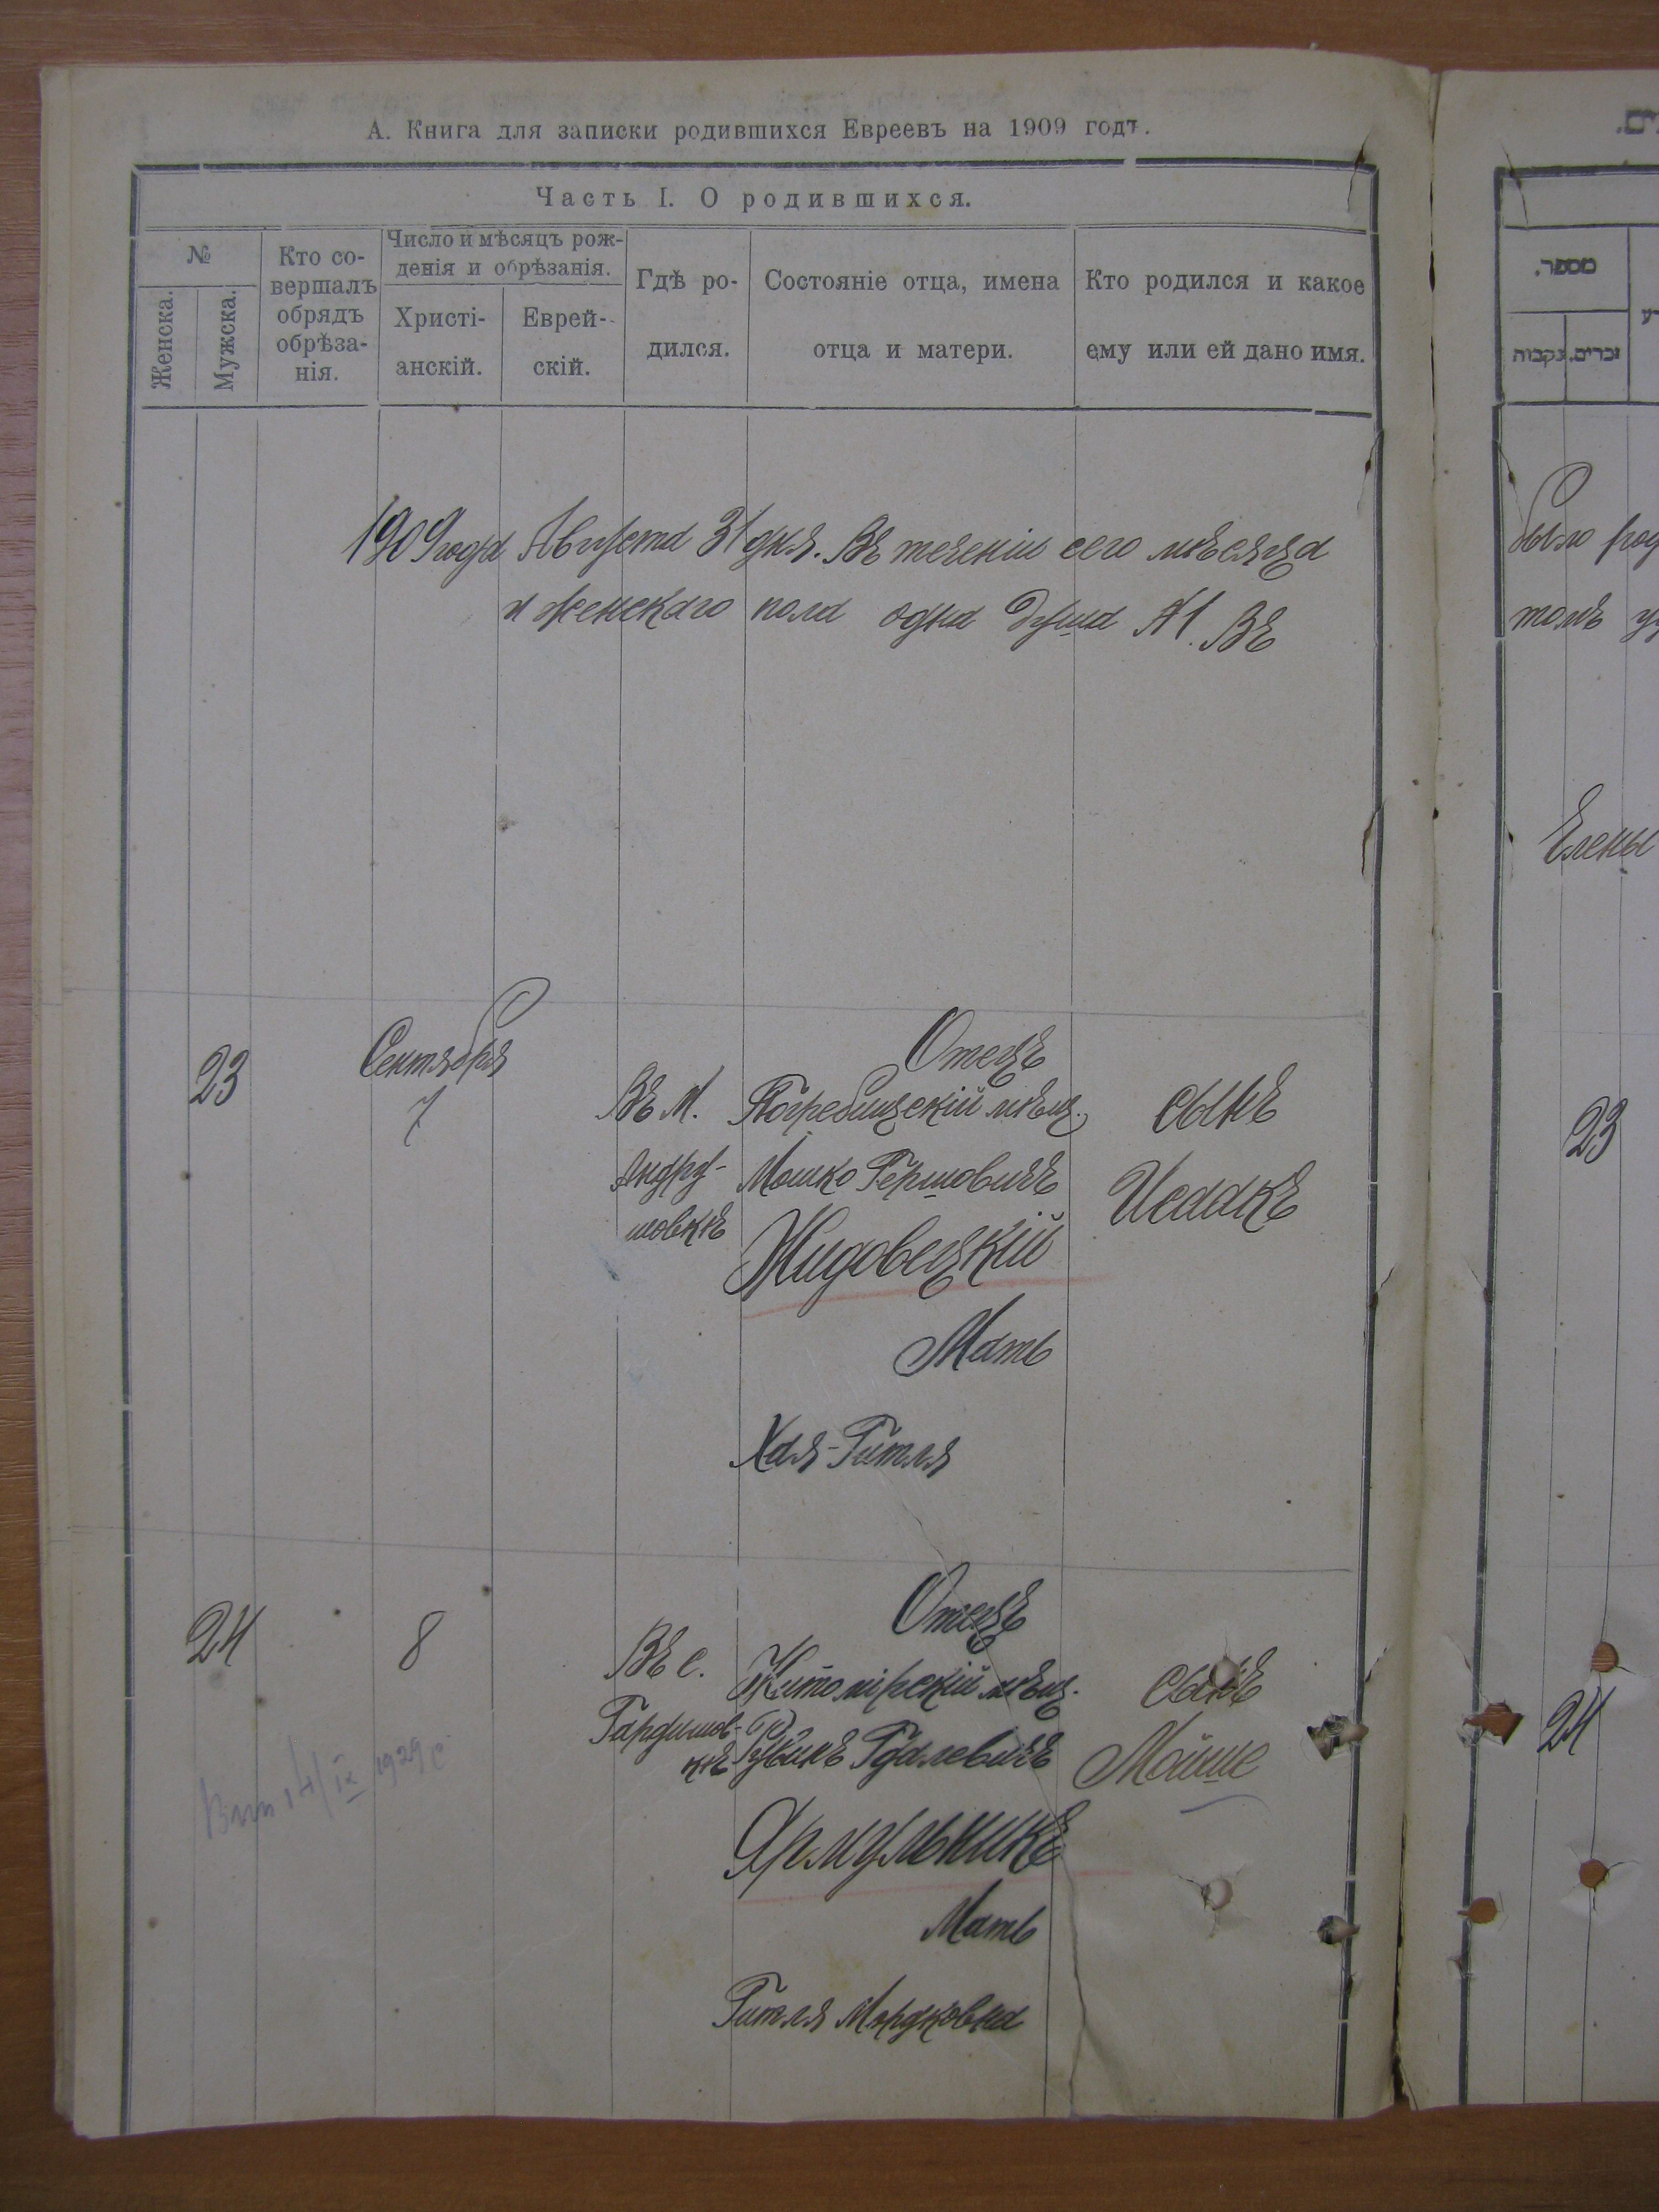 А. Книга для записки родившихся Евреевъ на 1909 годъ.
Часть I. О родившихся.
№
Женска.
Мужска.
Кто со-
вершалъ
обрядъ
обрѣза-
нія.
Число и мѣсяцъ рож-
денія и обрѣзанія.
Христі-
анскій.
Еврей-
скій.
Гдѣ ро-
дился.
Состояніе отца, имена
отца и матери.
Кто родился и какое
ему или ей дано имя.
1909 года Августа 31 дня. Въ теченіи сего мѣсяца
и женскаго пола одна душа №1. Въ
23
Сентября
7
Въ М.
Андру-
шовкѣ
Отецъ
Погребищскій мѣщ.
Мошко Гершовичъ
Жидовецкій
Мать
Хая-Гитля
сынъ
Исаакъ
24
8
Въ с.
Гардишов-
кѣ
Отецъ
Житомірскій мѣщ.
Рувинъ Гдалевичъ
Ярмульникъ
Мать
Гитля Мордковна
сынъ
Мойше
14/IX 1929
מספר.
זכרים.
נקבות
было
томъ
Елены
23
24